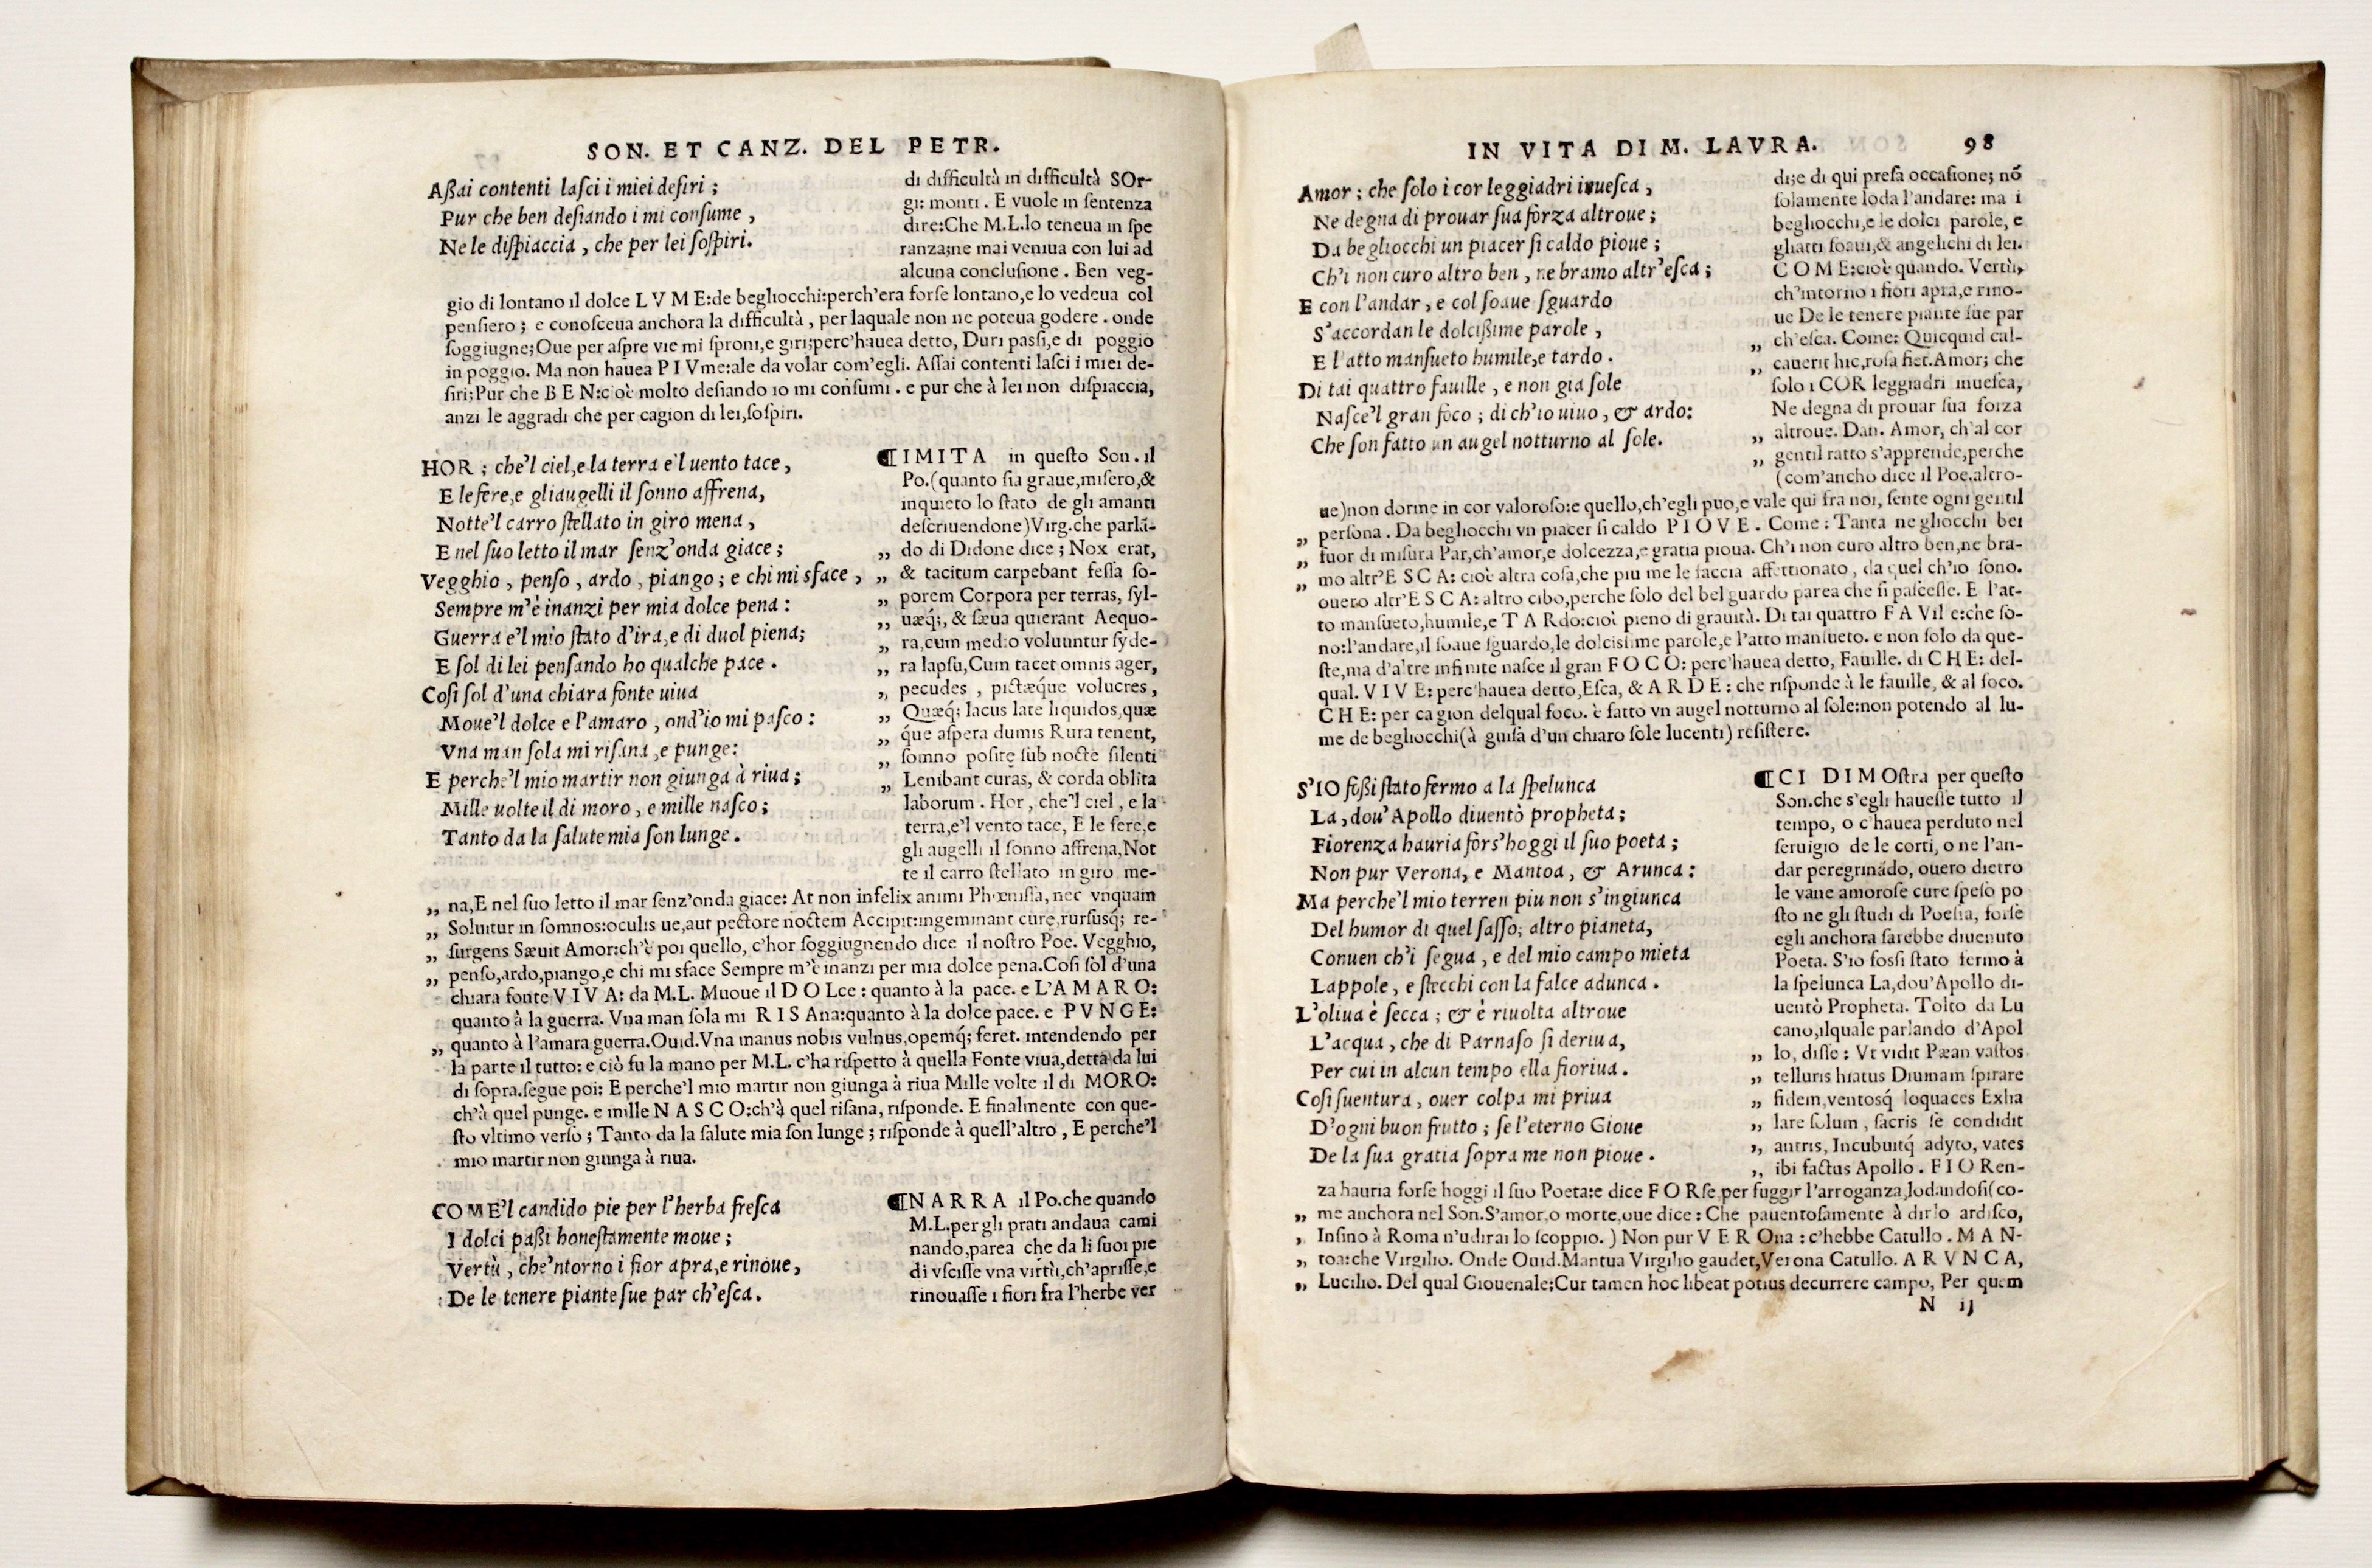 SON. ET CANZ. DEL PETR.
Aßai contenti laſci i miei deſiri ;
Pur che ben deſiando i mi conſume ,
Ne le diſpiaccia , che per lei ſoſpiri.
di difficultà in difficultà SOr-
gi: monti . E vuole in ſentenza
dire:Che M.L.lo teneua in ſpe
ranza;ne mai veniua con lui ad
alcuna concluſione . Ben veg-
gio di lontano il dolce L V M E:de begliocchi:perch'era forſe lontano,e lo vedeua col
penſiero ; e conoſceua anchora la difficultà , per laquale non ne poteua godere . onde
ſoggiugne;Oue per aſpre vie mi ſproni,e giri;perc'hauea detto, Duri paſſi,e di poggio
in poggio. Ma non hauea P I Vme:ale da volar com'egli. Aſſai contenti laſci i miei de-
ſiri;Pur che B E N:cioè molto deſiando io mi conſumi . e pur che à lei non diſpiaccia,
anzi le aggradi che per cagion di lei,ſoſpiri.
HOR ; che'l ciel,e la terra e'l uento tace ,
E le fere,e gliaugelli il ſonno affrena,
Notte'l carro ſtellato in giro mena ,
E nel ſuo letto il mar ſenz'onda giace ;
Vegghio , penſo , ardo , piango ; e chi mi sface ,
Sempre m'è inanzi per mia dolce pena :
Guerra e'l mio ſtato d'ira,e di duol piena;
E ſol di lei penſando ho qualche pace .
Coſi ſol d'una chiara fonte uiua
Moue'l dolce e l'amaro , ond'io mi paſco :
Vna man ſola mi riſana ,e punge:
E perche'l mio martir non giunga à riua ;
Mille uolte il di moro , e mille naſco ;
Tanto da la ſalute mia ſon lunge .
¶IMITA in queſto Son. il
Po.(quanto ſia graue,miſero,&
inquieto lo ſtato de gli amanti
deſcriuendone)Virg.che parlā-
„ do di Didone dice ; Nox erat,
„ & tacitum carpebant feſſa ſo-
„ porem Corpora per terras, ſyl-
„ uæq́;, & ſæua quierant Aequo-
„ ra,cum medio voluuntur ſyde-
„ ra lapſu,Cum tacet omnis ager,
„ pecudes , pictæq́ue volucres ,
„ Quæq́; lacus late liquidos,quæ
„ q́ue aſpera dumis Rura tenent,
„ ſomno poſitę ſub nocte ſilenti
„ Lenibant curas, & corda oblita
laborum . Hor , che'l ciel , e la
terra,e'l vento tace, E le fere,e
gli augelli il ſonno affrena,Not
te il carro ſtellato in giro me-
„ na,E nel ſuo letto il mar ſenz'onda giace: At non infelix animi Phœniſſa, nec vnquam
„ Soluitur in ſomnos:oculis ue,aut pectore noctem Accipit:ingeminant curę,rurſusq́; re-
„ ſurgens Sæuit Amor:ch'è poi quello, c'hor ſoggiugnendo dice il noſtro Poe. Vegghio,
„ penſo,ardo,piango,e chi mi sface Sempre m'è inanzi per mia dolce pena.Coſi ſol d'una
chiara fonte V I V A: da M.L. Muoue il D O Lce : quanto à la pace. e L'A M A R O:
quanto à la guerra. Vna man ſola mi R I S Ana:quanto à la dolce pace. e P V N G E:
„ quanto à l'amara guerra.Ouid.Vna manus nobis vulnus,opemq́; feret. intendendo per
la parte il tutto: e ciò fu la mano per M.L. c'ha riſpetto à quella Fonte viua,detta da lui
di ſopra.ſegue poi: E perche'l mio martir non giunga à riua Mille volte il di MORO:
ch'à quel punge. e mille N A S C O:ch'à quel riſana, riſponde. E finalmente con que-
ſto vltimo verſo ; Tanto da la ſalute mia ſon lunge ; riſponde à quell'altro , E perche'l
mio martir non giunga à riua.
COME'l candido pie per l'herba freſca
I dolci paßi honeſtamente moue ;
Vertù , che'ntorno i fior apra,e rinoue,
De le tenere piante ſue par ch'eſca.
¶NARRA il Po.che quando
M.L.per gli prati andaua cami
nando,parea che da li ſuoi pie
di vſciſſe vna virtù,ch'apriſſe,e
rinouaſſe i fiori fra l'herbe ver
IN VITA DI M. LAVRA. 98
Amor ; che ſolo i cor leggiadri inueſca ,
Ne degna di prouar ſua forza altroue ;
Da begliocchi un piacer ſi caldo pioue ;
Ch'i non curo altro ben , ne bramo altr'eſca ;
E con l'andar , e col ſoaue ſguardo
S'accordan le dolcißime parole ,
E l'atto manſueto humile,e tardo .
Di tai quattro fauille , e non gia ſole
Naſce'l gran foco ; di ch'io uiuo , & ardo:
Che ſon fatto un augel notturno al ſole.
di;e di qui preſa occaſione; nō
ſolamente loda l'andare: ma i
begliocchi,e le dolci parole, e
gliatti ſoaui,& angelichi di lei.
C O M E:cioè quando. Vertù,
ch'intorno i fiori apra,e rino-
ue De le tenere piante ſue par
„ ch'eſca. Come: Quicquid cal-
„ cauerit hic,roſa fiet.Amor; che
ſolo i COR leggiadri inueſca,
Ne degna di prouar ſua forza
„ altroue. Dan. Amor, ch'al cor
„ gentil ratto s'apprende,perche
(com'ancho dice il Poe.altro-
ue)non dorme in cor valoroſo:e quello,ch'egli puo,e vale qui fra noi, ſente ogni gentil
„ perſona . Da begliocchi vn piacer ſi caldo P I O V E . Come : Tanta ne gliocchi bei
„ fuor di miſura Par,ch'amor,e dolcezza,e gratia pioua. Ch'i non curo altro ben,ne bra-
„ mo altr'E S C A: cioè altra coſa,che piu me le faccia affettionato , da quel ch'io ſono.
ouero altr'E S C A: altro cibo,perche ſolo del bel guardo parea che ſi paſceſſe. E l'at-
to manſueto,humile,e T A Rdo:cioè pieno di grauità. Di tai quattro F A Vil e:che ſo-
no:l'andare,il ſoaue ſguardo,le dolciſsime parole,e l'atto manſueto. e non ſolo da que-
ſte,ma d'altre infinite naſce il gran F O C O: perc'hauea detto, Fauille. di C H E: del-
qual. V I V E: perc'hauea detto,Eſca, & A R D E : che riſponde à le fauille, & al foco.
C H E: per cagion delqual foco. è fatto vn augel notturno al ſole:non potendo al lu-
me de begliocchi(à guiſa d'un chiaro ſole lucenti) reſiſtere.
S'IO foßi ſtato fermo a la ſpelunca
La , dou'Apollo diuentò propheta ;
Fiorenza hauria fors'hoggi il ſuo poeta ;
Non pur Verona, e Mantoa , & Arunca :
Ma perche'l mio terren piu non s'ingiunca
Del humor di quel ſaſſo; altro pianeta,
Conuen ch'i ſegua , e del mio campo mieta
Lappole , e ſtecchi con la falce adunca .
L'oliua è ſecca ; & è riuolta altroue
L'acqua , che di Parnaſo ſi deriua,
Per cui in alcun tempo ella fioriua .
Coſi ſuentura , ouer colpa mi priua
D'ogni buon frutto ; ſe l'eterno Gioue
De la ſua gratia ſopra me non pioue .
¶CI DIMOſtra per queſto
Son.che s'egli haueſſe tutto il
tempo, o c'hauea perduto nel
ſeruigio de le corti, o ne l'an-
dar peregrinādo, ouero dietro
le vane amoroſe cure ſpeſo po
ſto ne gli ſtudi di Poeſia, forſe
egli anchora ſarebbe diuenuto
Poeta. S'io foſſi ſtato fermo à
la ſpelunca La,dou'Apollo di-
uentò Propheta. Tolto da Lu
cano,ilquale parlando d'Apol
„ lo, diſſe : Vt vidit Pæan vaſtos
„ telluris hiatus Diuinam ſpirare
„ fidem,ventosq́ loquaces Exha
„ lare ſolum , ſacris ſe condidit
„ antris, Incubuitq́ adyto, vates
„ ibi factus Apollo . F I O Ren-
za hauria forſe hoggi il ſuo Poeta:e dice F O Rſe,per fuggir l'arroganza,lodandoſi(co-
„ me anchora nel Son.S'amor,o morte,oue dice : Che pauentoſamente à dirlo ardiſco,
„ Inſino à Roma n'udirai lo ſcoppio. ) Non pur V E R Ona : c'hebbe Catullo . M A N-
„ toa:che Virgilio. Onde Ouid.Mantua Virgilio gaudet,Verona Catullo. A R V N C A,
„ Lucilio. Del qual Giouenale;Cur tamen hoc libeat potius decurrere campo, Per quem
N ij